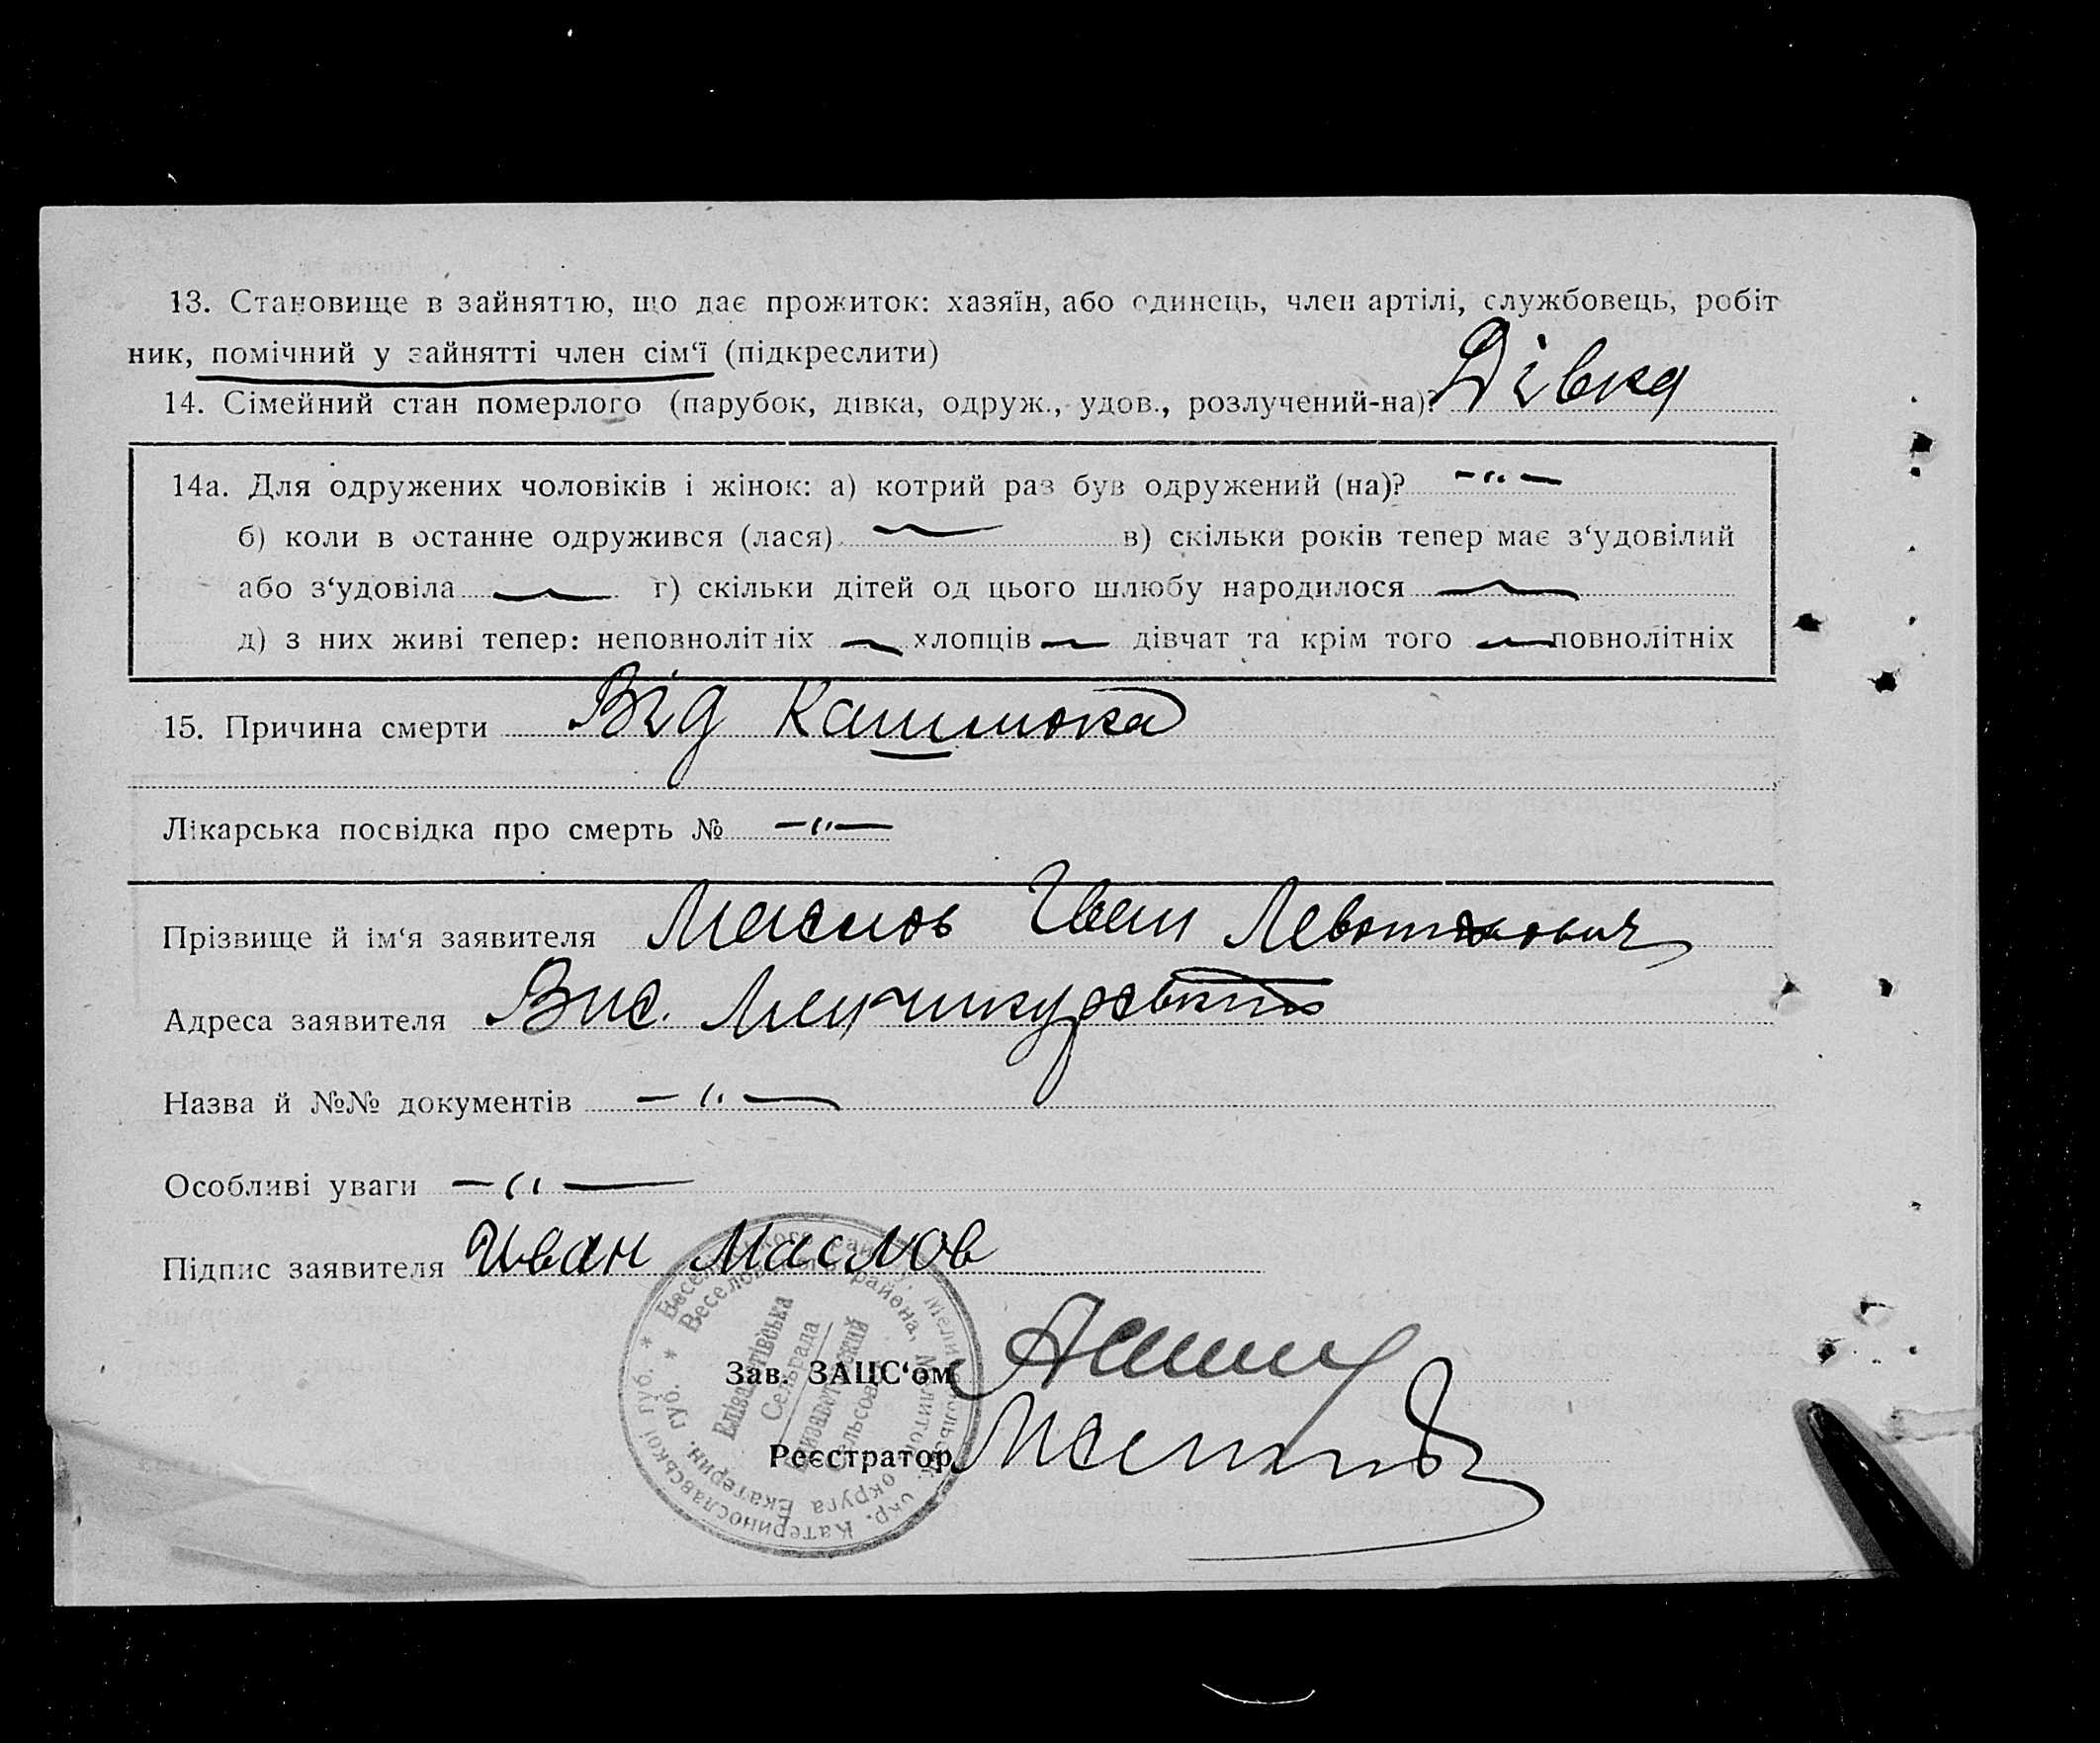 13. Становище в зайняттю, що дає прожиток: хазяїн, або одинець, член артілі, службовець, робіт
ник, помічний у зайнятті член сім‘ї (підкреслити)
14. Сімейний стан померлого (парубок, дівка, одруж., удов., розлучений-на)? Дівка
14а. Для одружених чоловіків і жінок: а) котрий раз був одружений (на)? —"—
б) коли в останне одружився (лася) — в) скільки років тепер має з‘удовілий
або з‘удовіла — г) скільки дітей од цього шлюбу народилося —
д) з них живі тепер: неповнолітніх — хлопців — дівчат та крім того — повнолітніх
15. Причина смерти Від Кашлюка
Лікарська посвідка про смерть № —"—
Прізвище й ім‘я заявителя Маслов Іван
Адреса заявителя Вис.
Назва й №№ документів —"—
Особливі уваги —"—
Підпис заявителя Иван Маслов
Зав. ЗАЦС‘ом
Реєстратор
Веселівського району, Мелітопольськ. окр. Катеринославської губ. *
Веселовского района, Мелитоп. округа Екатерин. губ. *
Елізаветівська
Сельрада
Елизаветовский
Сельсовет